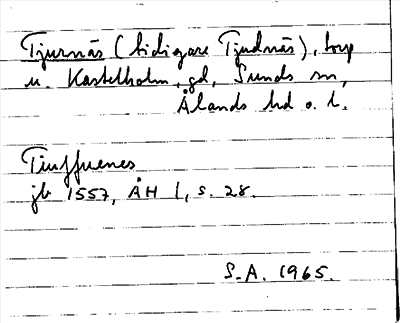 Tjurnäs (tidigare Tjudnäs), torp
u. Kastelholm, gd, Sunds sn,
Ålands hd o. l.
Tiuffuenes
jb 1557, ÅH 1, s. 28.
S.A. 1965.